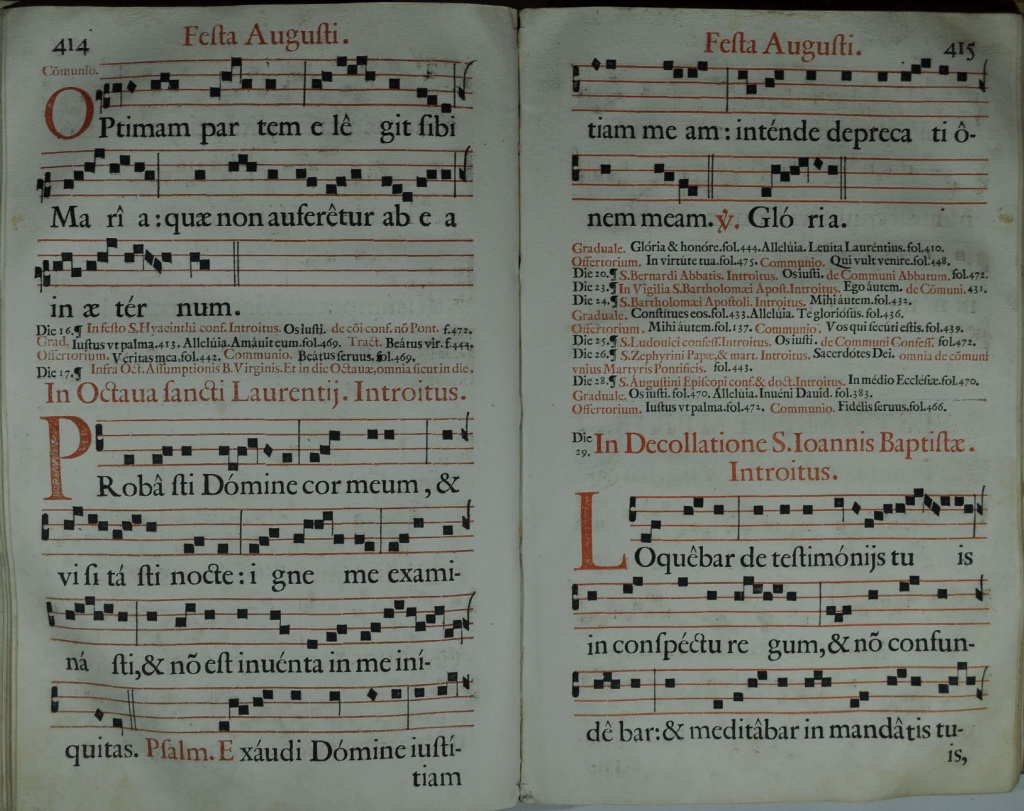 414
Festa Augusti.
Cõmunio.
OPtimam par tem e lê git sibi
Ma rî a: quæ non auferêtur ab e a
in æ tér num.
Die 16.¶ In festo S.Hyacinthi conf. Introitus. Os iusti. de cõi conf. nõ Pont. f.472.
Grad. Iustus vt palma.413. Allelúia. Amáuit eum.fol.469. Tract. Beátus vir.f.444.
Offertorium. Véritas mea.fol.442. Communio. Beátus seruus.fol.469.
Die 17.¶ Infra Oct. Assumptionis B.Virginis. Et in die Octauæ, omnia sicut in die.
In Octaua sancti Laurentij. Introitus.
PRobâ sti Dómine cor meum, &
vi si tá sti nocte: i gne me exami-
ná sti, & nõ est inuénta in me iní-
quitas. Psalm. E xáudi Dómine iustí-
tiam
Festa Augusti.
415
tiam me am: inténde depreca ti ô-
nem meam. ℣. Gló ri a.
Graduale. Glória & honóre.fol.444. Allelúia. Leuita Lauréntius.fol.410.
Offertorium. In virtúte tua.fol.475. Communio. Qui vult venire.fol.448.
Die 20.¶ S.Bernardi Abbatis. Introitus. Os iusti. de Communi Abbatum. fol.472.
Die 23.¶ In Vigilia S.Bartholomæi Apost. Introitus. Ego áutem. de Cõmuni. 431.
Die 24.¶ S.Bartholomæi Apostoli. Introitus. Mihi áutem.fol.432.
Graduale. Constítues eos.fol.433. Allelúia. Te gloriósus.fol.436.
Offertorium. Mihi áutem.fol.137. Communio. Vos qui secúti estis.fol.439.
Die 25.¶ S.Ludouici confess. Introitus. Os iusti. de Communi Confess. fol.472.
Die 26.¶ S.Zephyrini Papæ, & mart. Introitus. Sacerdótes Dei. omnia de cõmuni
vnius Martyris Pontificis. fol.443.
Die 28.¶ S.Augustini Episcopi conf. & doct. Introitus. In médio Ecclésiæ.fol.470.
Graduale. Os iusti.fol.470. Allelúia. Inuéni Dauid. fol.383.
Offertorium. Iustus vt palma.fol.472. Communio. Fidélis seruus.fol.466.
Die 29. In Decollatione S.Ioannis Baptistæ.
Introitus.
LOquêbar de testimónijs tu is
in conspéctu re gum, & nõ confun-
dê bar: & meditâbar in mandâtis tu-
is,